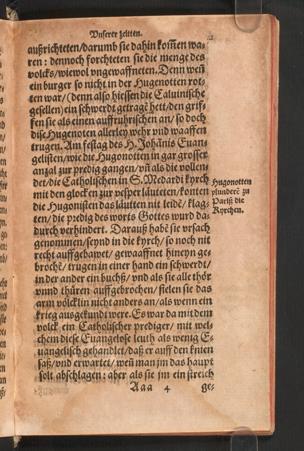 Vnserer zeitten.
außrichteten/darumb sie dahin kom̃en wa-
ren: dennoch forchteten sie die menge des
volcks/wiewol vngewaffneten. Denn weñ
ein burger so nicht in der Hugenotten rot-
ten war/(denn also hiessen die Caluinische
gesellen) ein schwerdt getragē hett/den grif-
fen sie als einen auffrhürischen an/so doch
dise Hugenotten allerley wehr vnd waaffen
trugen. Am festag des H. Johānis Euan-
gelisten/wie die Hugonotten in gar grosser
anzal zur predig gangen/vñ als die vollen-
det/die Catholischen in S. Medardi kyrch
mit den glocken zur vesper läutten/konten
die Hugonisten das läutten nit leidē/klag-
ten/die predig des worts Gottes wurd da-
durch verhindert. Darauß habē sie vrsach
genommen/seynd in die kyrch/so noch nit
recht auffgebawet/gewaaffnet hineyn ge-
brochē/trugen in einer hand ein schwerdt/
in der ander ein buchß/vnd als sie alle thór
vnnd thüren auffgebrochen/fielen sie das
arm völcklin nicht anders an/als wenn ein
krieg außgekundt were. Es war da mit dem
volck ein Catholischer prediger/mit wel-
chem diese Euangelose leuth als wenig E-
uangelisch gehandlet/daß er auff den knien
saß/vnd erwartet/weñ man jm das haupt
solt abschlagen: aber als sie jm ein streich
Aaa 4 ge-
Hugonotten
plunderē zu
Pariß die
Kyrchen.